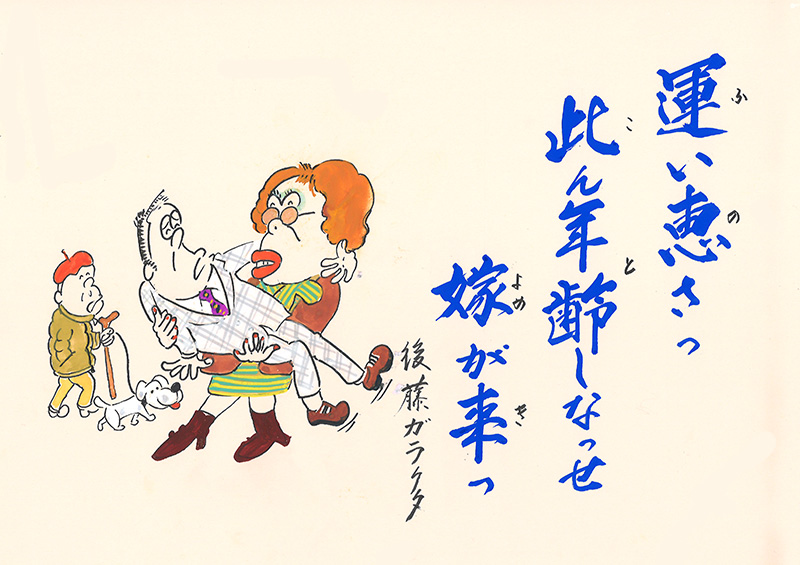 運い恵さっ
ふ
の
此ん年齢しなっせ
こ
と
嫁が来っ
よめ
き
後藤ガラクタ